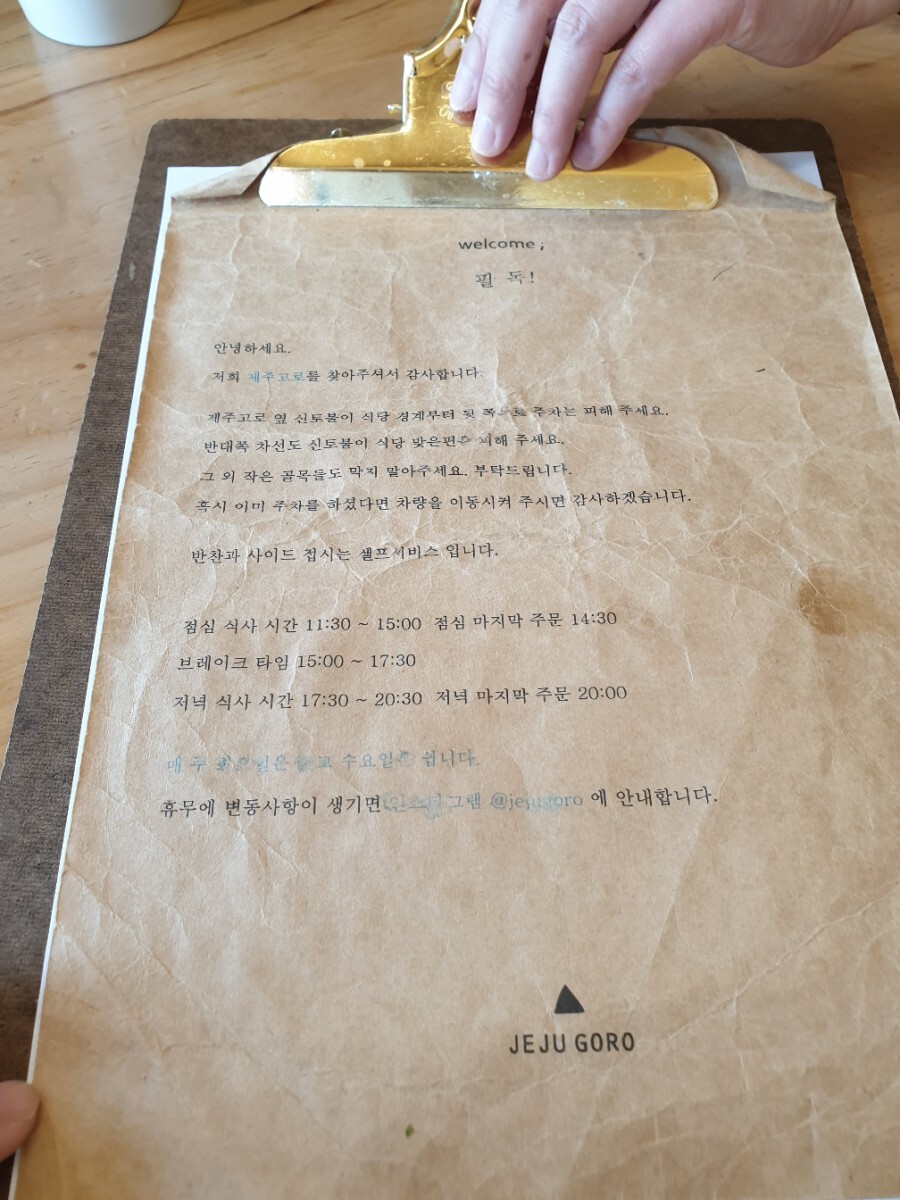 welcome ;
필 독!
안녕하세요.
저희 제주고로를 찾아주셔서 감사합니다.
제주고로 옆 신토불이 식당 경계부터 뒷 쪽으로 주차는 피해 주세요.
반대쪽 차선도 신토불이 식당 맞은편은 피해 주세요.
그 외 작은 골목들도 막지 말아주세요. 부탁드립니다.
혹시 이미 주차를 하셨다면 차량을 이동시켜 주시면 감사하겠습니다.
반찬과 사이드 접시는 셀프서비스 입니다.
점심 식사 시간 11:30 ~ 15:00 점심 마지막 주문 14:30
브레이크 타임 15:00 ~ 17:30
저녁 식사 시간 17:30 ~ 20:30 저녁 마지막 주문 20:00
매 주 수요일은 쉽니다.
휴무에 변동사항이 생기면 인스타그램 @jejugoro 에 안내합니다.
JEJU GORO